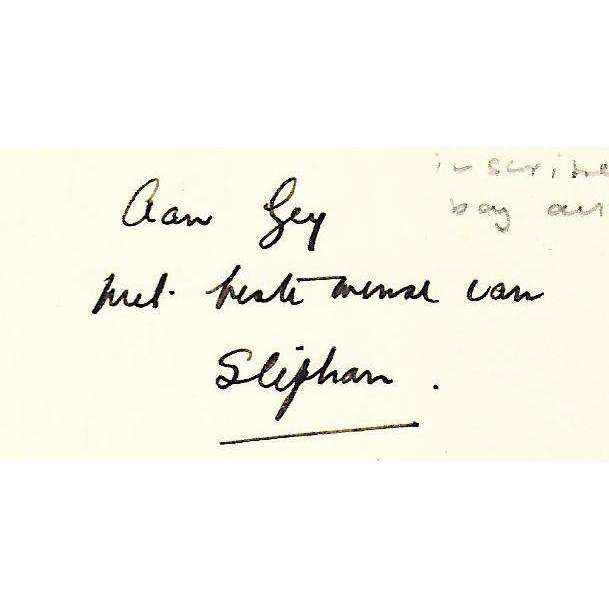 inscribe
by au
Aan Gey
met beste wense van
Stephan.